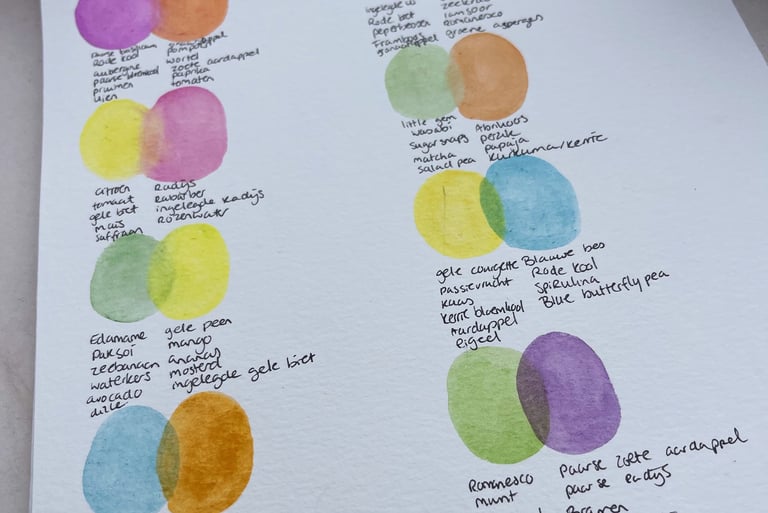 Rode kool
aubergine
pruimen
uien
pompoen
wortel
zoete aardappel
paprika
tomaten
citroen
tomaat
gele biet
mais
saffraan
Radijs
Rabarber
ingelegde Radijs
Rozenwater
Edamame
Paksoi
zeebanaan
waterkers
avocado
dille
gele peen
mango
ananas
mosterd
ingelegde gele biet
Rode biet
peperbessen
Framboos
granaatappel
zeekraal
lamsoor
Romanesco
groene asperges
little gem
wasabi
sugar snaps
matcha
salad pea
Abrikoos
perzik
papaja
kurkuma/kerrie
gele courgette
passievrucht
kaas
kerrie bloemkool
Aardappel
eigeel
Blauwe bes
Rode kool
Spirulina
Blue butterfly pea
Romanesco
munt
paarse zoete aardappel
paarse radijs
Bramen